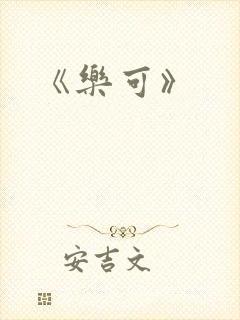 《樂可》
安吉文